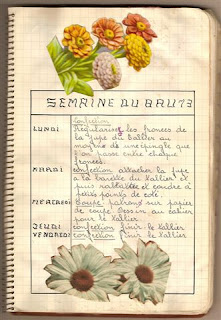 SEMAINE DU 8 AU 13
confection
LUNDI Régulariser les fronces de
la jupe du tablier au
moyen de une épingle que
l'on passe entre chaque
fronces.
MARDI confection attacher la jupe
à la barette du tablier
puis rabattre et coudre à
petits points de côté.
MERCREDI Coupe patrons sur papier
de coupe Dessin au cahier
pour le tablier
JEUDI confection finir le tablier
VENDREDI confection finir le tablier